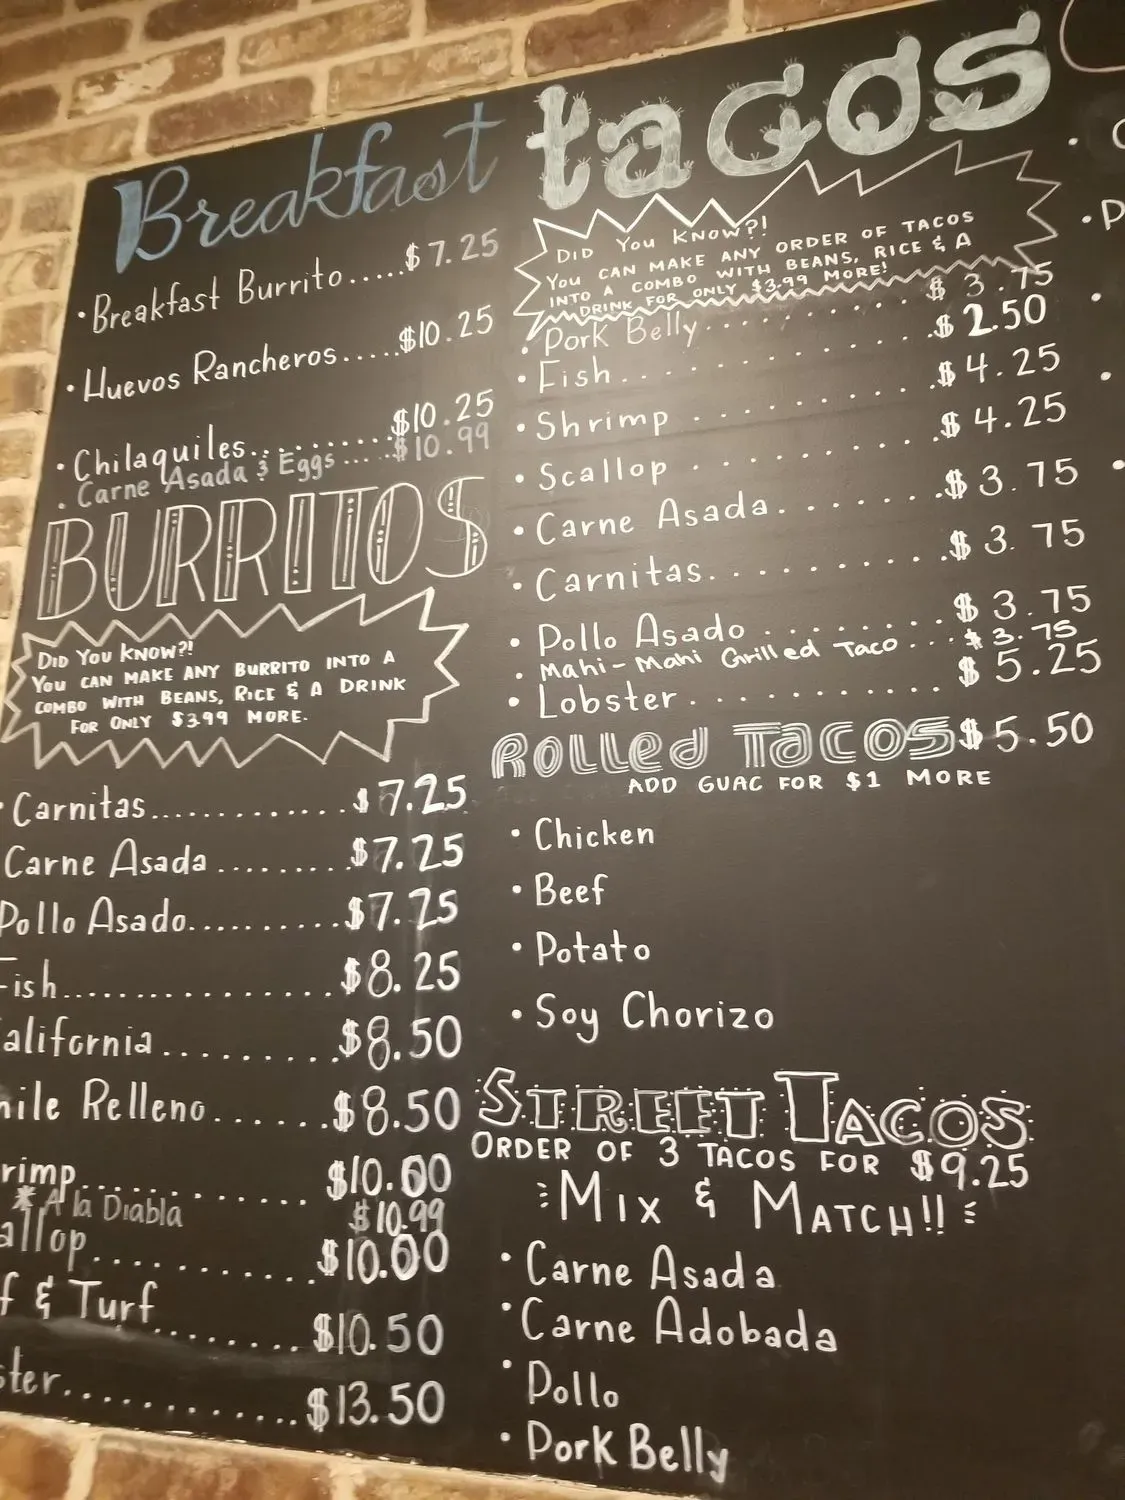 Breakfast
• Breakfast Burrito.....$7.25
• Huevos Rancheros.....$10.25
• Chilaquiles.........$10.25
• Carne Asada & Eggs.....$10.99
BURRITOS
DID YOU KNOW?!
YOU CAN MAKE ANY BURRITO INTO A
COMBO WITH BEANS, RICE & A DRINK
FOR ONLY $3.99 MORE.
• Carnitas.............$7.25
Carne Asada.........$7.25
Pollo Asado..........$7.25
Fish................$8.25
alifornia..........$8.50
ile Relleno......$8.50
rimp............$10.00
* A la Diabla $10.99
allop............$10.00
f & Turf
........$10.50
ster.............$13.50
tacos
DID YOU KNOW?!
YOU CAN MAKE ANY ORDER OF TACOS
INTO A COMBO WITH BEANS, RICE & A
DRINK FOR ONLY $3.99 MORE!
• Pork Belly..........$3.75
• Fish.............$2.50
• Shrimp..........$4.25
• Scallop..........$4.25
• Carne Asada.......$3.75
• Carnitas..........$3.75
• Pollo Asado........$3.75
• Mahi-Mahi Grilled Taco...$3.75
• Lobster..........$5.25
Rolled Tacos $5.50
ADD GUAC FOR $1 MORE
• Chicken
• Beef
• Potato
• Soy Chorizo
STREET TACOS
ORDER OF 3 TACOS FOR $9.25
MIX & MATCH!!
• Carne Asada
• Carne Adobada
• Pollo
• Pork Belly